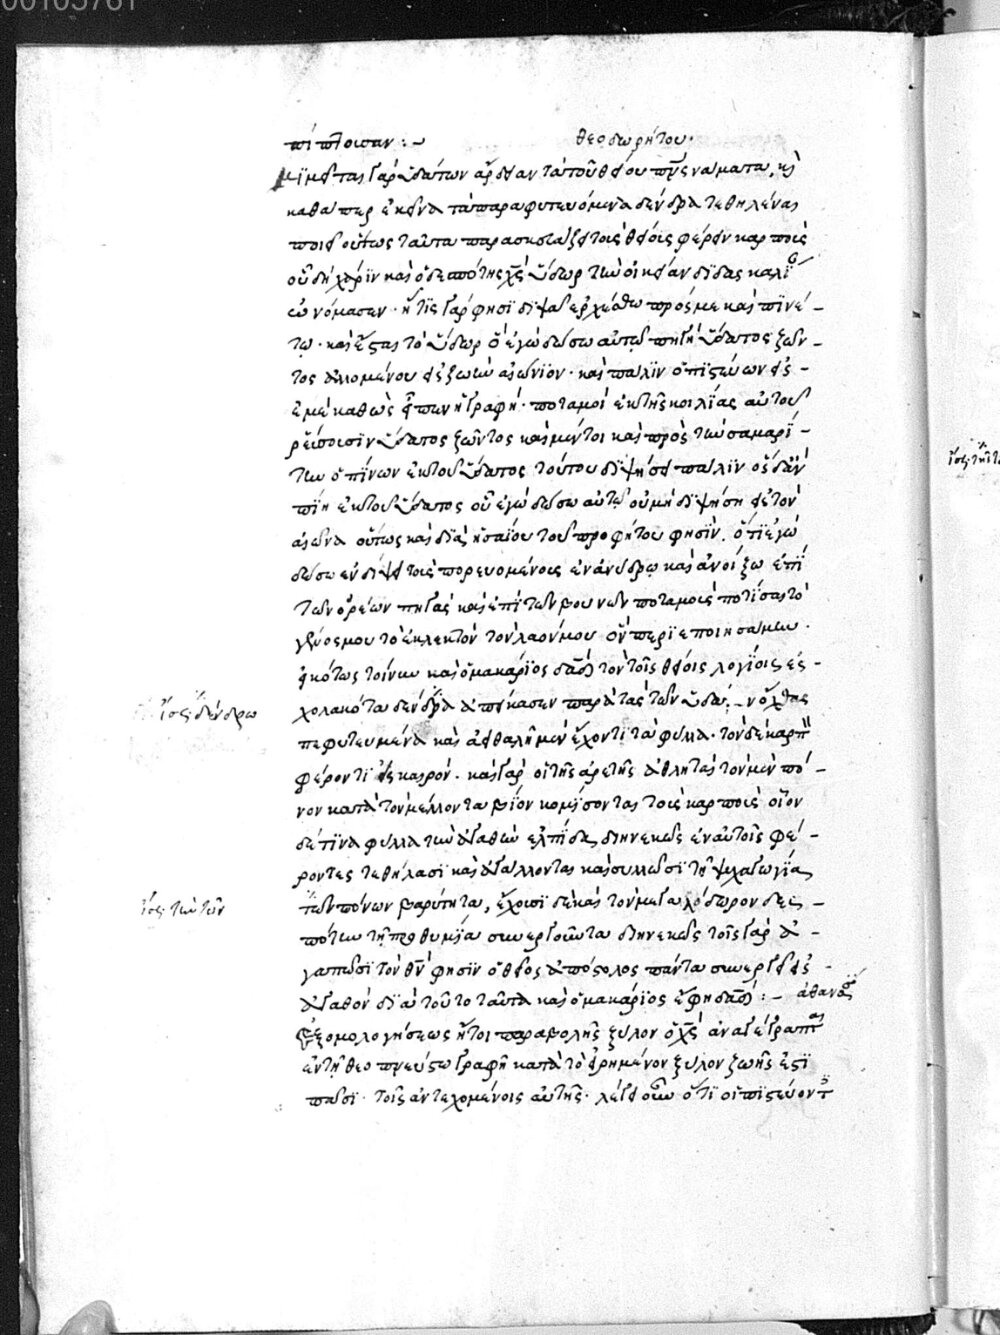 00105761
πίπτουσαν :~ θεοδωρήτου·
μιμεῖται γὰρ ὑδάτων ἀρδείαν τὰ τοῦ θείου πν̅ς νάματα, καὶ
καθάπερ ἐκεῖνα τὰ παραφυτευόμενα δένδρα τεθηλέναι
ποιεῖ οὕτως ταῦτα παρασκευάζει τοῖς θείοις φέρειν καρποῖς
οὗ δὴ χάριν καὶ ὁ δεσπότης χ̅ς ὕδωρ τὴν οἰκείαν διδασκαλίαν
ὠνόμασεν· ἤ τις γάρ φησι διψᾶ ἐρχέσθω πρός με καὶ πινέ-
τω· καὶ ἔσται τὸ ὕδωρ ὃ ἐγὼ δώσω αὐτῷ πηγὴ ὕδατος ζῶν-
τος ἁλλομένου εἰς ζωὴν αἰώνιον· καὶ πάλιν ὁ πιστεύων εἰς
ἐμὲ καθὼς εἶπεν ἡ γραφή· ποταμοὶ ἐκ τῆς κοιλίας αὐτοῦ
ῥεύσουσιν ὕδατος ζῶντος καὶ μέντοι καὶ πρὸς τὴν σαμαρί-
την ὁ πίνων ἐκ τοῦ ὕδατος τούτου διψήσει πάλιν ὃς δ' ἂν
πίῃ ἐκ τοῦ ὕδατος οὗ ἐγὼ δώσω αὐτῷ οὐ μὴ διψήσῃ εἰς τὸν
αἰῶνα οὕτως καὶ διὰ ἡσαΐου τοῦ προφήτου φησὶν. ὅτι ἐγὼ
δώσω ἐν δίψει τοῖς πορευομένοις ἐν ἀνύδρῳ καὶ ἀνοίξω ἐπὶ
τῶν ὀρέων πηγὰς καὶ ἐπὶ τῶν βουνῶν ποταμοὺς ποτίσαι τὸ
γένος μου τὸ ἐκλεκτὸν τὸν λαόν μου ὃν περιεποιησάμην·
εἰκότως τοίνυν καὶ ὁ μακάριος δα̅δ τὸν τοῖς θείοις λογίοις ἐσ-
χολακότα δένδρα ἀπείκασεν παρὰ τὰς τῶν ὑδά- ν ὄχθας
ἴσως δένδρῳ
πεφυτευμένα καὶ ἀειθαλῆ μὲν ἔχοντι τὰ φύλλα· τὸν δὲ καρπὸν
φέροντι εἰς καιρόν· καὶ γὰρ οἱ τῆς ἀρετῆς ἀθληταὶ τὸν μὲν πό-
νον κατὰ τὸν μέλλοντα βίον κομίσονται τοὺς καρποὺς οἷον
δέ τινα φύλλα τὴν ἀγαθὴν ἐλπίδα διηνεκῶς ἐν αὐτοῖς φέ-
ροντες τεθήλασι καὶ ἀγάλλονται καὶ συλλῶσι τῇ ψυχαγωγίᾳ
τῶν πόνων βαρύτητα, ἔχουσι δὲ καὶ τὸν μεγαλόδωρον δεσ-
ἴσως τὴν τῶν
πότην τῇ προθυμίᾳ συνεργοῦντα διηνεκῶς τοῖς γὰρ ἀ-
γαπῶσι τὸν θν̅ φησὶν ὁ θεῖος ἀπόστολος πάντα συνεργεῖ εἰς
ἀγαθόν διὰ τοῦτο ταῦτα καὶ ὁ μακάριος ἔφη δα̅δ :- ἀθανασίου
Ἐξομολογήσεως ἤτοι παραβολῆς ξύλον ὁ χ̅ς ἀναγέγραπται
ἐν τῇ θεοπνεύστῳ γραφῇ κατὰ τὸ εἰρημένον ξύλον ζωῆς ἐστὶ
πᾶσι· τοῖς ἀντεχομένοις αὐτῆς· λέγει οὖν ὅτι οἱ πιστεύοντες